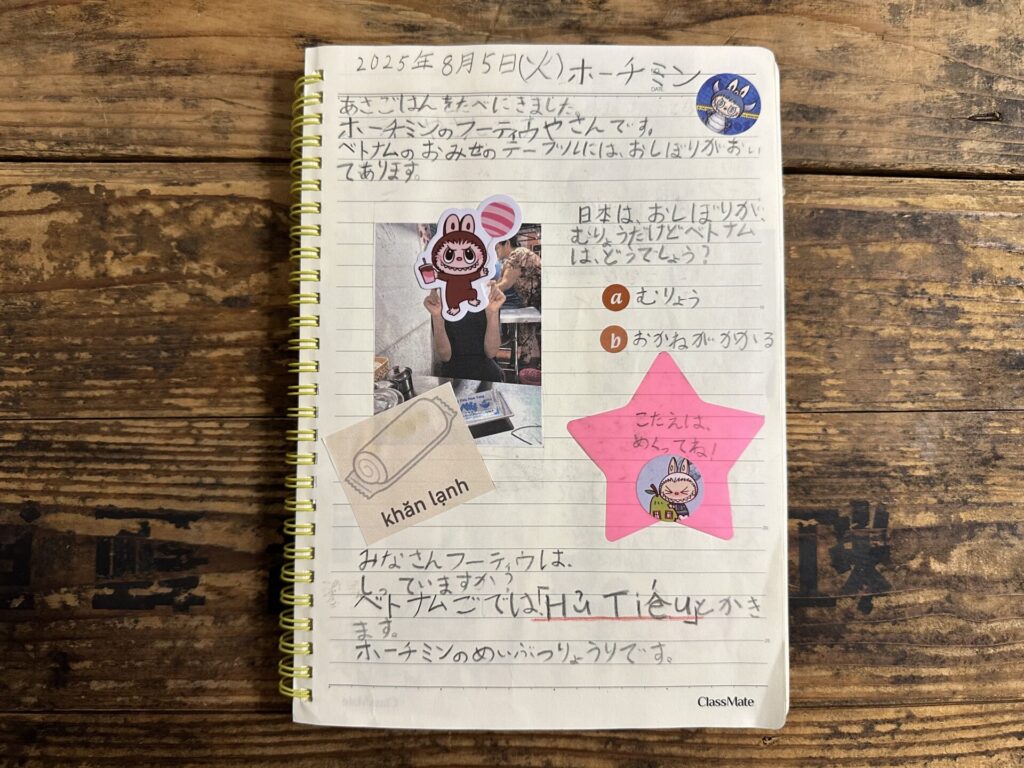 2025年8月5日(火)ホーチミン
DATE
あさごはんをたべにきました
ホーチミンのフーティウやさんです。
ベトナムのおみせのテーブルには、おしぼりがおい
てあります。
日本は、おしぼりが、
むりょうだけどベトナム
は、どうでしょう?
a むりょう
b おかねがかかる
こたえは、
めくってね!
khăn lạnh
みなさんフーティウは、
しっていますか?
ベトナムごでは「Hủ Tiếu」とかき
ます。
ホーチミンのめいぶつりょうりです。
ClassMate